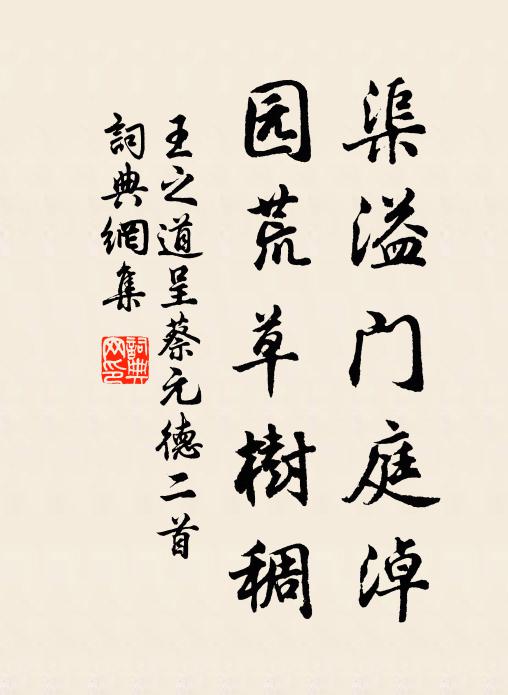 渠溢門庭淖
园荒草樹稠
王之道呈蔡元德二首
詞典網集
詞典網印